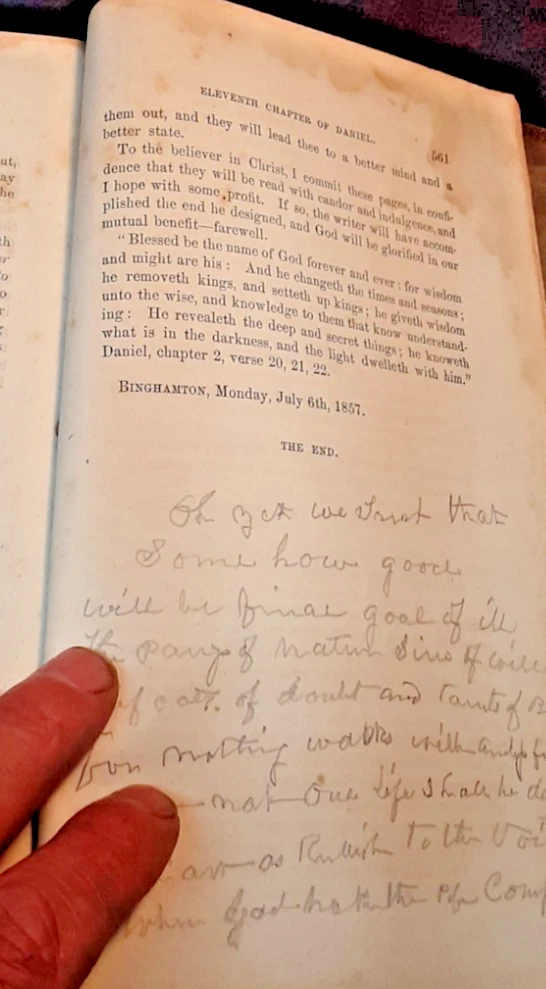 ut,
ay
he
th
ELEVENTH CHAPTER OF DANIEL.
561
them out, and they will lead thee to a better mind and a
better state.
To the believer in Christ, I commit these pages, in confi-
dence that they will be read with candor and indulgence, and
I hope with some profit. If so, the writer will have accom-
plished the end he designed, and God will be glorified in our
mutual benefit—farewell.
"Blessed be the name of God forever and ever: for wisdom
and might are his: And he changeth the times and seasons;
he removeth kings, and setteth up kings; he giveth wisdom
unto the wise, and knowledge to them that know understand-
ing: He revealeth the deep and secret things; he knoweth
what is in the darkness, and the light dwelleth with him."
Daniel, chapter 2, verse 20, 21, 22.
BINGHAMTON, Monday, July 6th, 1857.
THE END.
Oh yet we trust that
Some how good
will be final goal of ill
The pangs of nature Sins of will
of doubt and Taints of B
nothing walks with
not One life Shall be de
as Rubbish To the Voi
When God hath the Comp